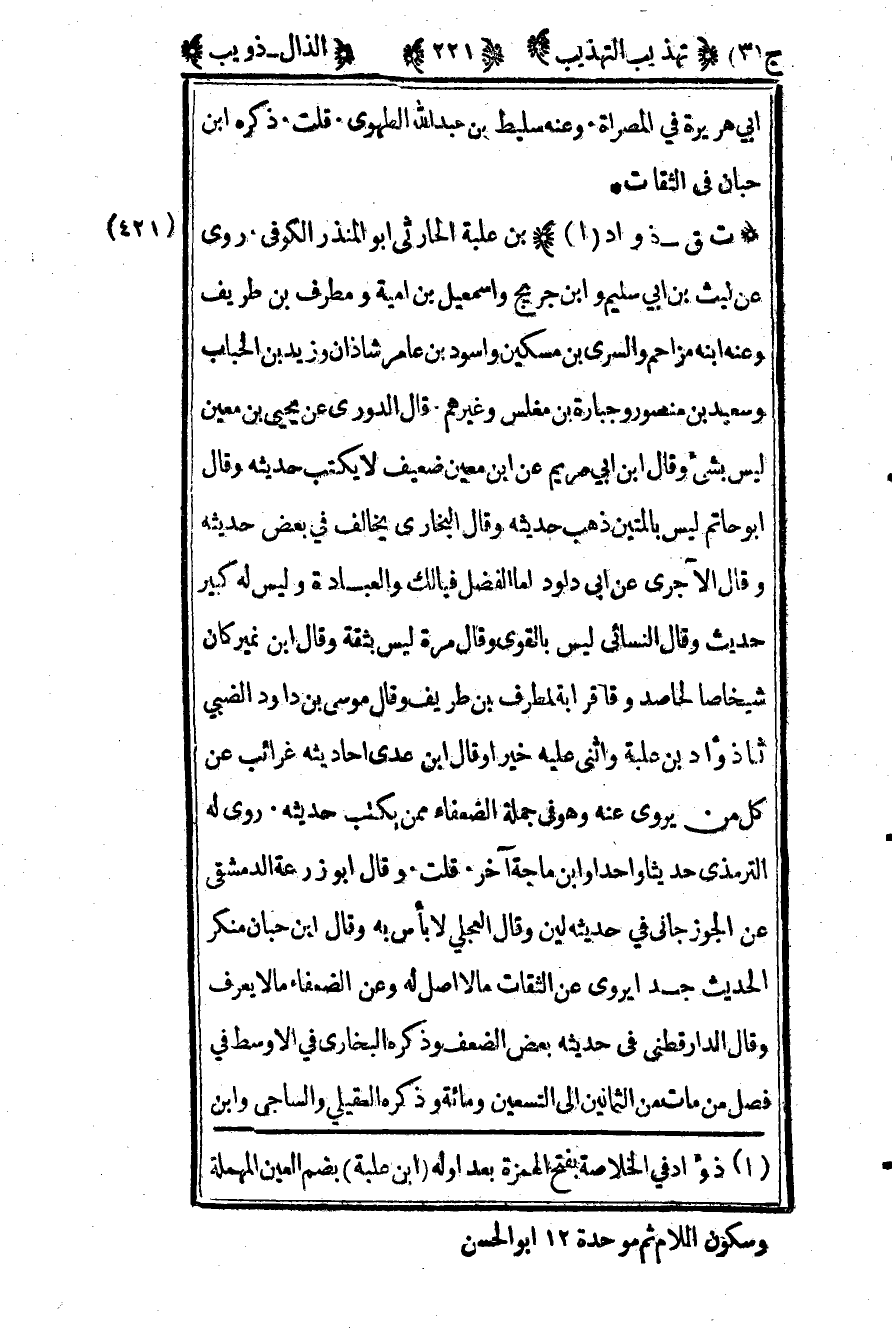 ج(٣) ﴿ تهذيب التهذيب ﴾ ﴿ ٢٢١ ﴾ ﴿ الذال ــ ذويب ﴾
ابي هريرة في المصراة · وعنه سليط بن عبدالله الطهوى · قلت · ذكره ابن
حبان فى الثقات •
﴿ ت ق ــ ذواد (١) ﴾ بن علبة الحارثى ابو المنذر الكوفى · روى (٤٢١)
عن ليث بن ابي سليم و ابن جريج واسمعيل بن امية و مطرف بن طريف
وعنه ابنه مزاحم والسرى بن مسكين واسود بن عامر شاذان وزيد بن الحباب
وسعيد بن منصور وجبارة بن مغلس وغيرهم · قال الدورى عن يحيى بن معين
ليس بشئ وقال ابن ابي مريم عن ابن معين ضعيف لا يكتب حديثه وقال
ابو حاتم ليس بالمتين ذهب حديثه وقال البخارى يخالف في بعض حديثه
و قال الآجرى عن ابى داود اما الفضل فيالك والعبادة و ليس له كبير
حديث وقال النسائى ليس بالقوى وقال مرة ليس بثقة وقال ابن نمير كان
شيخا صالحا صدوقا قرابة لمطرف بن طريف وقال موسى بن داود الضبي
ثنا ذوّاد بن علبة واثنى عليه خيرا وقال ابن عدى احاديثه غرائب عن
كل من يروى عنه وهو فى جملة الضعفاء ممن يكتب حديثه · روى له
الترمذى حديثا واحدا وابن ماجة آخر · قلت · و قال ابو زرعة الدمشقى
عن الجوزجانى في حديثه لين وقال العجلي لا بأس به وقال ابن حبان منكر
الحديث جدا يروى عن الثقات مالا اصل له وعن الضعفاء مالا يعرف
وقال الدارقطنى فى حديثه بعض الضعف وذكره البخارى في الاوسط في
فصل من مات من الثمانين الى التسعين ومائة و ذكره العقيلي والساجى وابن
(١) ذوّاد في الخلاصة بفتح الهمزة بعد اوله (ابن علبة) بضم العين المهملة
وسكون اللام ثم موحدة ١٢ ابو الحسن